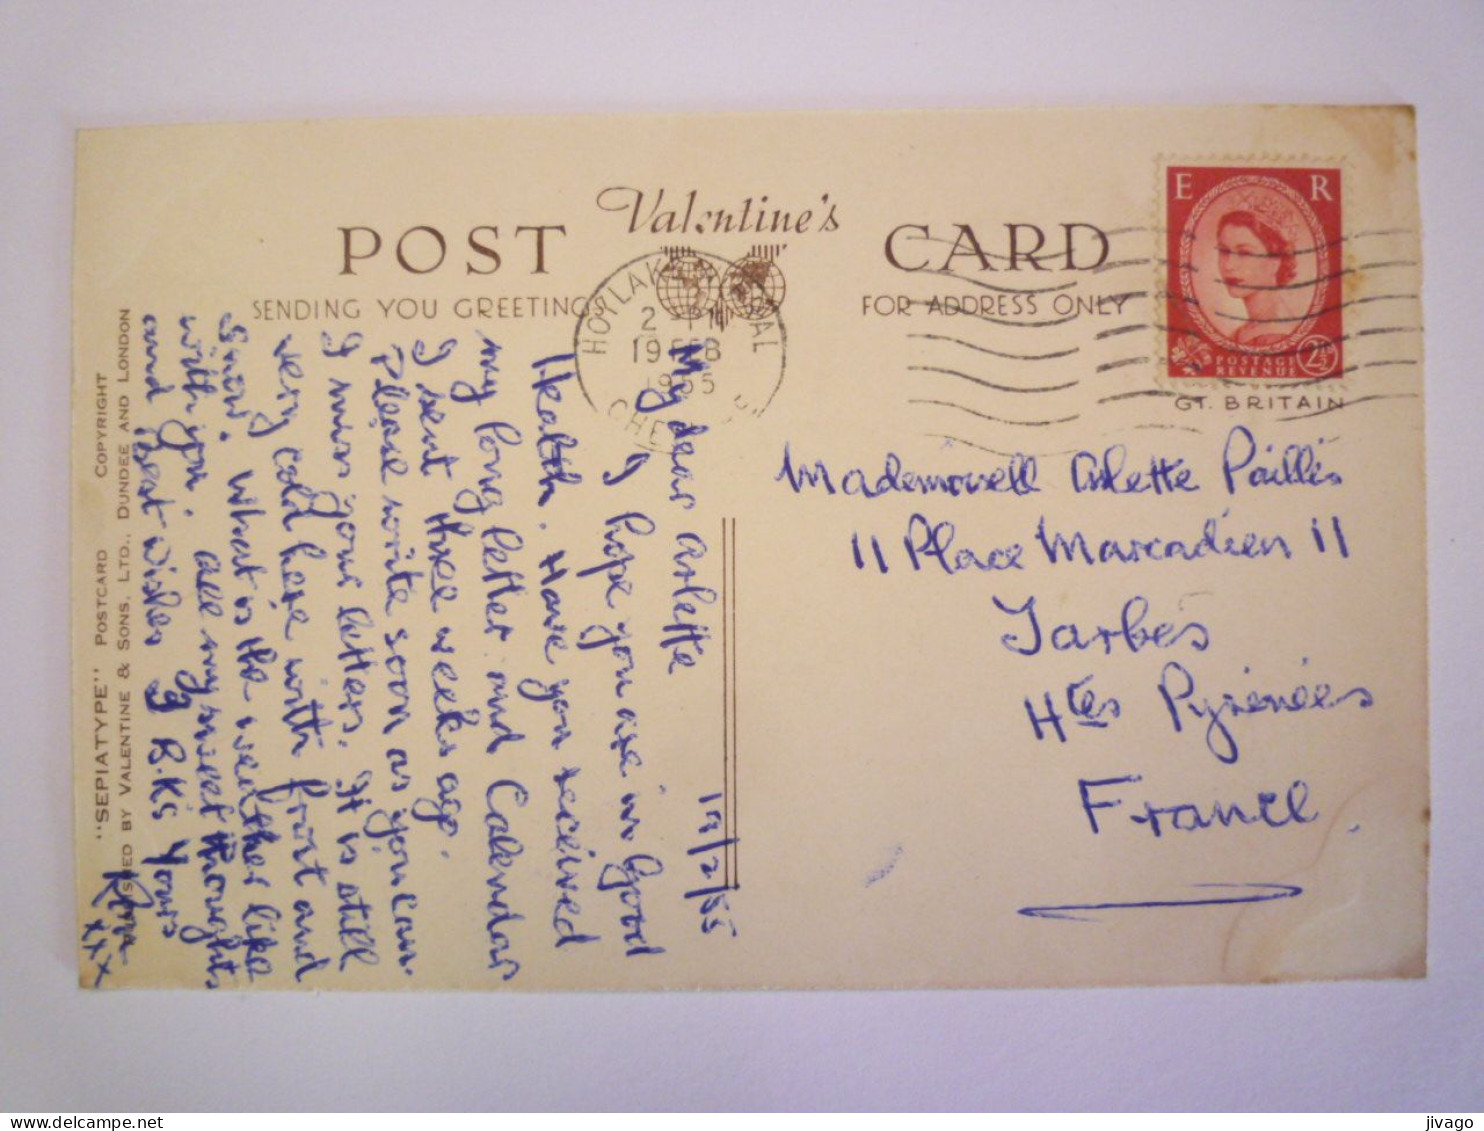 POST Valentine's CARD
SENDING YOU GREETINGS
FOR ADDRESS ONLY
HOYLAKE WIRRAL
2 - PM
19 FEB
1955
CHESHIRE
E R
POSTAGE
REVENUE
2½
GT. BRITAIN
19/2/55
My dear Arlette
I hope you are in Good
Health. Have you received
my long letter and Calendar
I sent three weeks ago.
Please write soon as you can.
I miss your letters. It is still
very cold here with frost and
Snow. What is the weather like
with you. All my sweet thoughts
and Best wishes & B.K's Yours
Ron
xxx
Mademoisell Arlette Paillés
11 Place Marcadieu 11
Tarbes
Htes Pyrénées
France.
"SEPIATYPE" POSTCARD COPYRIGHT
PUBLISHED BY VALENTINE & SONS, LTD., DUNDEE AND LONDON